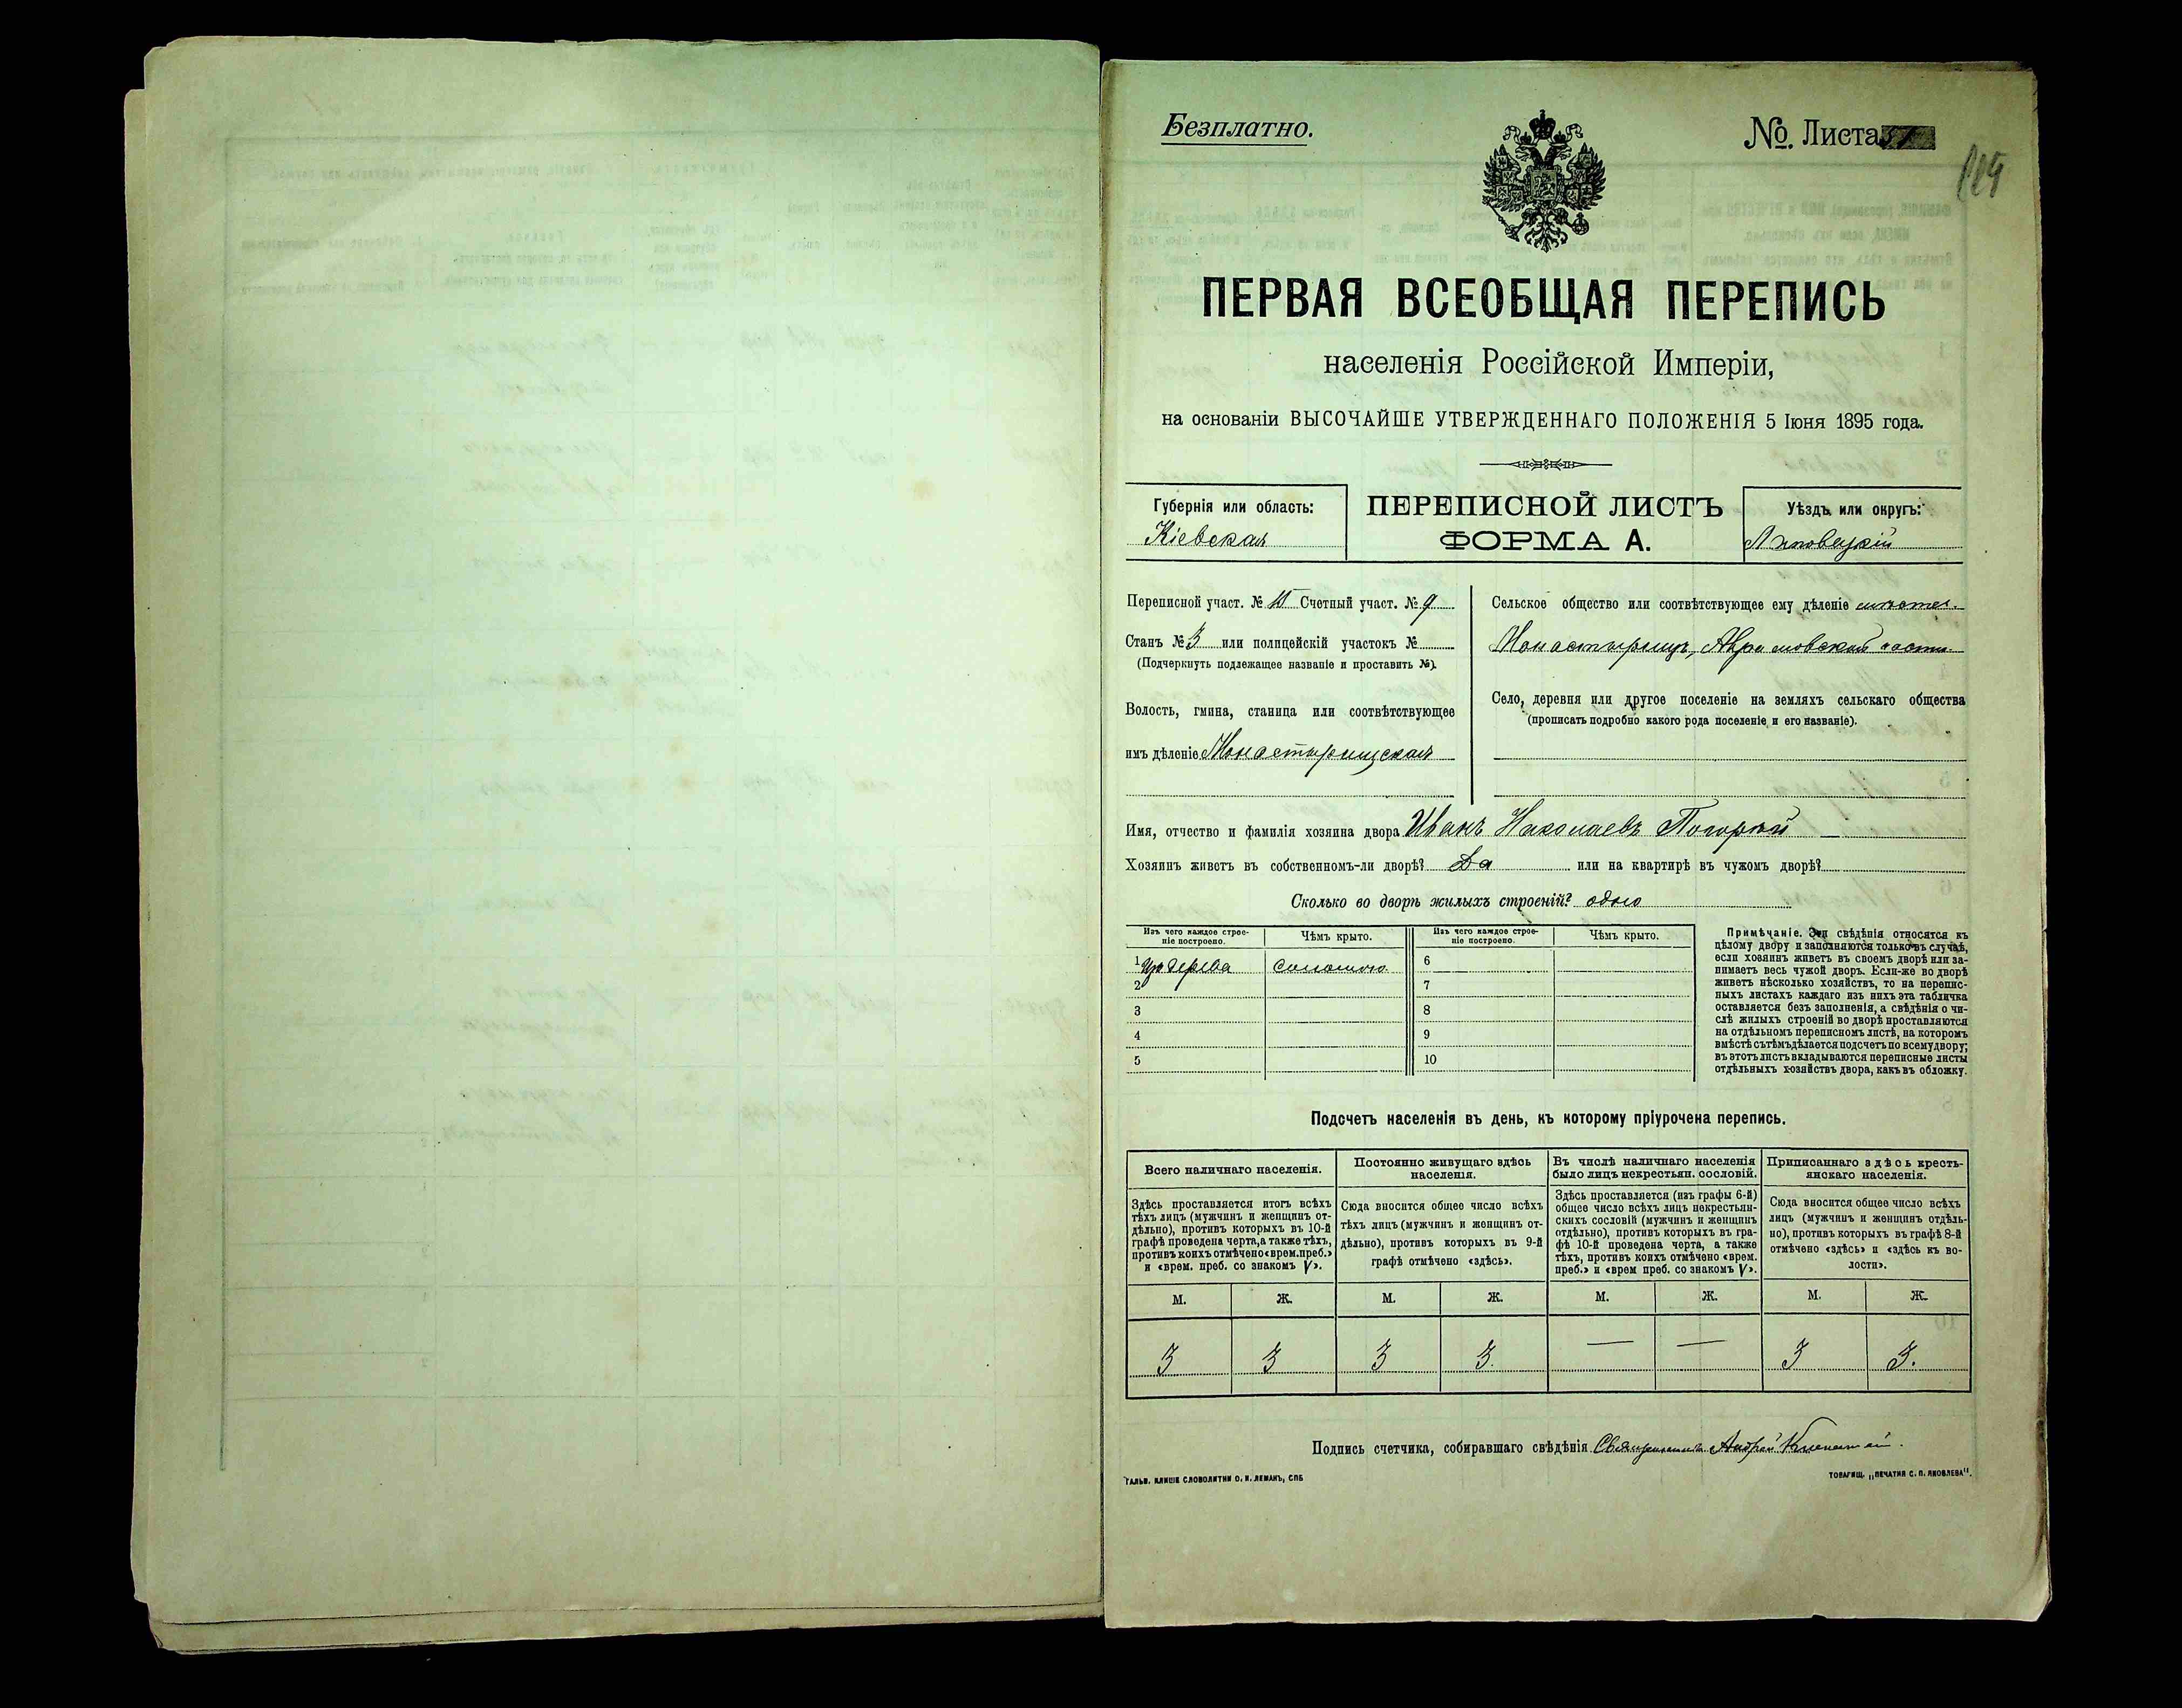 Безплатно.
№. Листа 51
ПЕРВАЯ ВСЕОБЩАЯ ПЕРЕПИСЬ
населенія Россійской Имперіи,
на основаніи ВЫСОЧАЙШЕ УТВЕРЖДЕННАГО ПОЛОЖЕНІЯ 5 Іюня 1895 года.
Губернія или область:
Кіевская
ПЕРЕПИСНОЙ ЛИСТЪ
ФОРМА А.
Уѣздъ или округъ:
Липовецкій
Переписной участ. № Счетный участ. № 9
Станъ № 3 или полицейскій участокъ №
(Подчеркнуть подлежащее названіе и проставить №).
Волость, гмина, станица или соотвѣтствующее
имъ дѣленіе Монастырищская
Сельское общество или соотвѣтствующее ему дѣленіе
Монастырищ,
Село, деревня или другое поселеніе на земляхъ сельскаго общества
(прописать подробно какого рода поселеніе и его названіе).
Имя, отчество и фамилія хозяина двора Иванъ Николаевъ
Хозяинъ живетъ въ собственномъ-ли дворѣ? Да или на квартирѣ въ чужомъ дворѣ?
Сколько во дворѣ жилыхъ строеній? одно
Изъ чего каждое строе-
ніе построено.
Чѣмъ крыто.
Изъ чего каждое строе-
ніе построено.
Чѣмъ крыто.
1 Изъ дерева соломою 6
2 7
3 8
4 9
5 10
Примѣчаніе. Эти свѣдѣнія относятся къ
цѣлому двору и заполняются только въ случаѣ,
если хозяинъ живетъ въ своемъ дворѣ или за-
нимаетъ весь чужой дворъ. Если-же во дворѣ
живетъ нѣсколько хозяйствъ, то на перепис-
ныхъ листахъ каждаго изъ нихъ эта табличка
оставляется безъ заполненія, а свѣдѣнія о чи-
слѣ жилыхъ строеній во дворѣ проставляются
на отдѣльномъ переписномъ листѣ, на которомъ
вмѣстѣ съ тѣмъ дѣлается подсчетъ по всему двору;
въ этотъ листъ вкладываются переписные листы
отдѣльныхъ хозяйствъ двора, какъ въ обложку.
Подсчетъ населенія въ день, къ которому пріурочена перепись.
Всего наличнаго населенія.
Здѣсь проставляется итогъ всѣхъ
тѣхъ лицъ (мужчинъ и женщинъ от-
дѣльно), противъ которыхъ въ 10-й
графѣ проведена черта, а также тѣхъ,
противъ коихъ отмѣчено «врем. преб.»
и «врем. преб. со знакомъ V».
Постоянно живущаго здѣсь
населенія.
Сюда вносится общее число всѣхъ
тѣхъ лицъ (мужчинъ и женщинъ от-
дѣльно), противъ которыхъ въ 9-й
графѣ отмѣчено «здѣсь».
Въ числѣ наличнаго населенія
было лицъ некрестьян. сословій.
Здѣсь проставляется (изъ графы 6-й)
общее число всѣхъ лицъ некрестьян-
скихъ сословій (мужчинъ и женщинъ
отдѣльно), противъ которыхъ въ гра-
фѣ 10-й проведена черта, а также
тѣхъ, противъ коихъ отмѣчено «врем.
преб.» и «врем преб. со знакомъ V».
Приписаннаго здѣсь кресть-
янскаго населенія.
Сюда вносится общее число всѣхъ
лицъ (мужчинъ и женщинъ отдѣль-
но), противъ которыхъ въ графѣ 8-й
отмѣчено «здѣсь» и «здѣсь къ во-
лости».
М. Ж. М. Ж. М. Ж. М. Ж.
3 3 3 3. — — 3 3.
Подпись счетчика, собиравшаго свѣдѣнія Священникъ Андрей
ГАЛЬВ. КЛИШЕ СЛОВОЛИТНИ О. И. ЛЕМАНЪ, СПБ
ТОВАРИЩ. „ПЕЧАТНЯ С. П. ЯКОВЛЕВА".